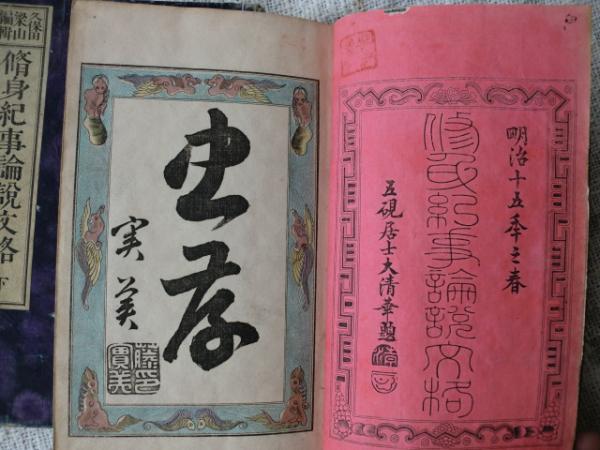 明治十五季之春
脩身紀事論說文格
五硯居士大清華題
忠孝
実美
藤印
實美
久保田
梁山
編輯
脩身紀事論說文格 下